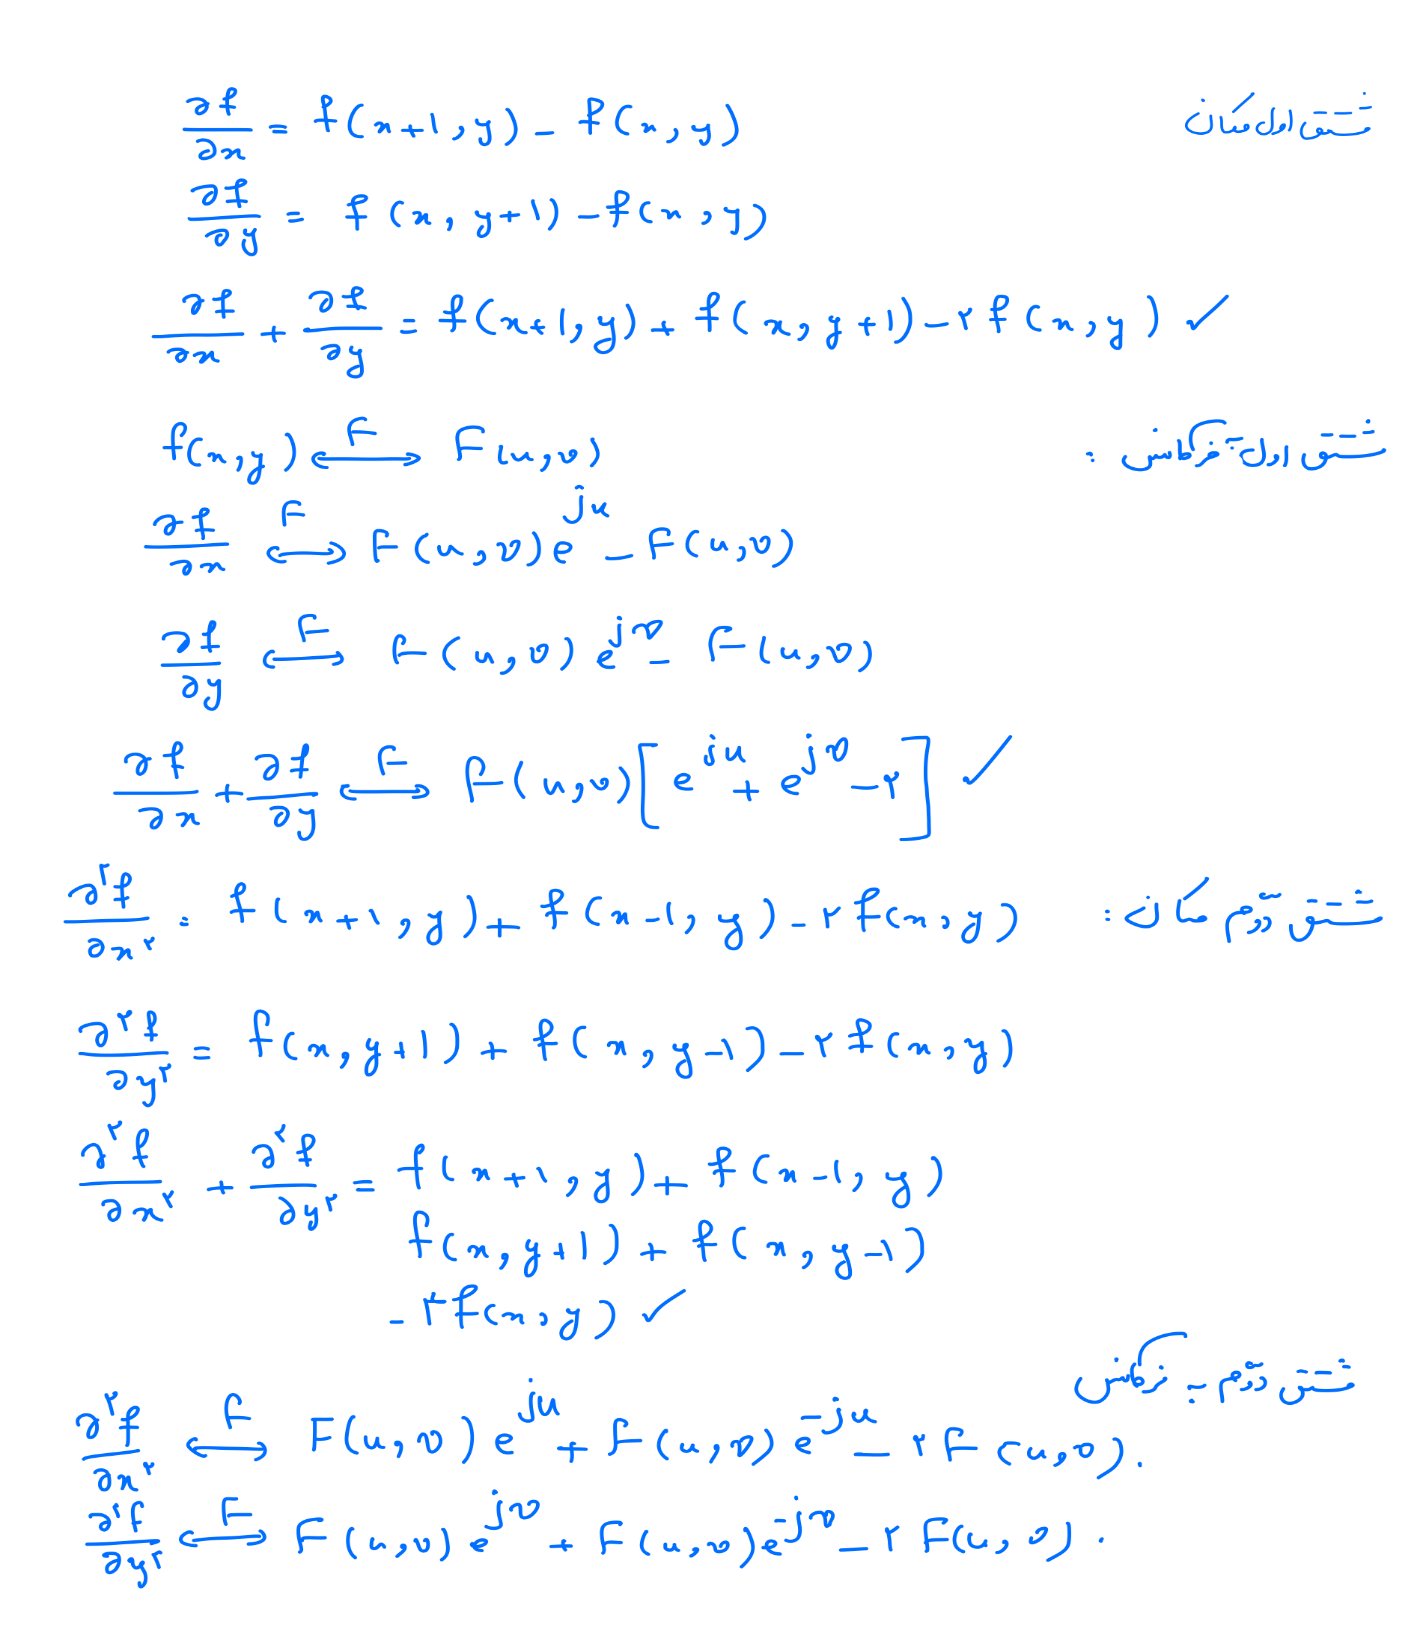 مشتق اول مکان
∂f/∂x = f(x+1, y) - f(x, y)
∂f/∂y = f(x, y+1) - f(x, y)
∂f/∂x + ∂f/∂y = f(x+1, y) + f(x, y+1) - ۲f(x, y) ✓
مشتق اول به فرکانس :
f(x,y) ⟷F F(u,v)
∂f/∂x ⟷F F(u,v)e^{ju} - F(u,v)
∂f/∂y ⟷F F(u,v)e^{jv} - F(u,v)
∂f/∂x + ∂f/∂y ⟷F F(u,v)[e^{ju} + e^{jv} - ۲] ✓
مشتق دوّم مکان :
∂^۲f/∂x^۲ = f(x+1, y) + f(x-1, y) - ۲f(x, y)
∂^۲f/∂y^۲ = f(x, y+1) + f(x, y-1) - ۲f(x, y)
∂^۲f/∂x^۲ + ∂^۲f/∂y^۲ = f(x+1, y) + f(x-1, y)
f(x, y+1) + f(x, y-1)
- ۴f(x, y) ✓
مشتق دوّم به فرکانس
∂^۲f/∂x^۲ ⟷F F(u,v)e^{ju} + F(u,v)e^{-ju} - ۲F(u,v).
∂^۲f/∂y^۲ ⟷F F(u,v)e^{jv} + F(u,v)e^{-jv} - ۲F(u,v).